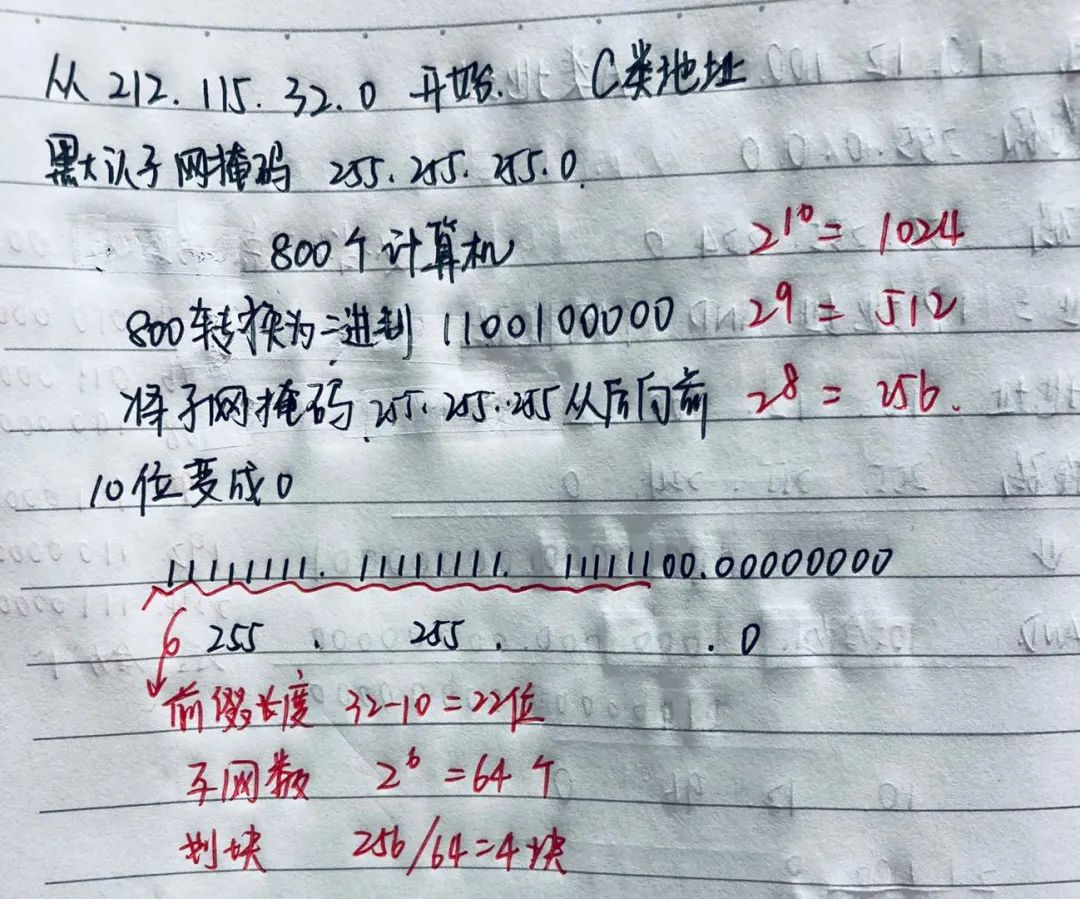 从 212.115.32.0 开始. C类地址
默认子网掩码 255.255.255.0.
800个计算机 2^10 = 1024
800转换为二进制 1100100000 2^9 = 512
将子网掩码 255.255.255 从后向前 2^8 = 256.
10位变成0
11111111.11111111.11111100.00000000
6 255 . 255 . . 0
前缀长度 32-10=22位
子网数 2^6 = 64 个
划块 256/64=4块